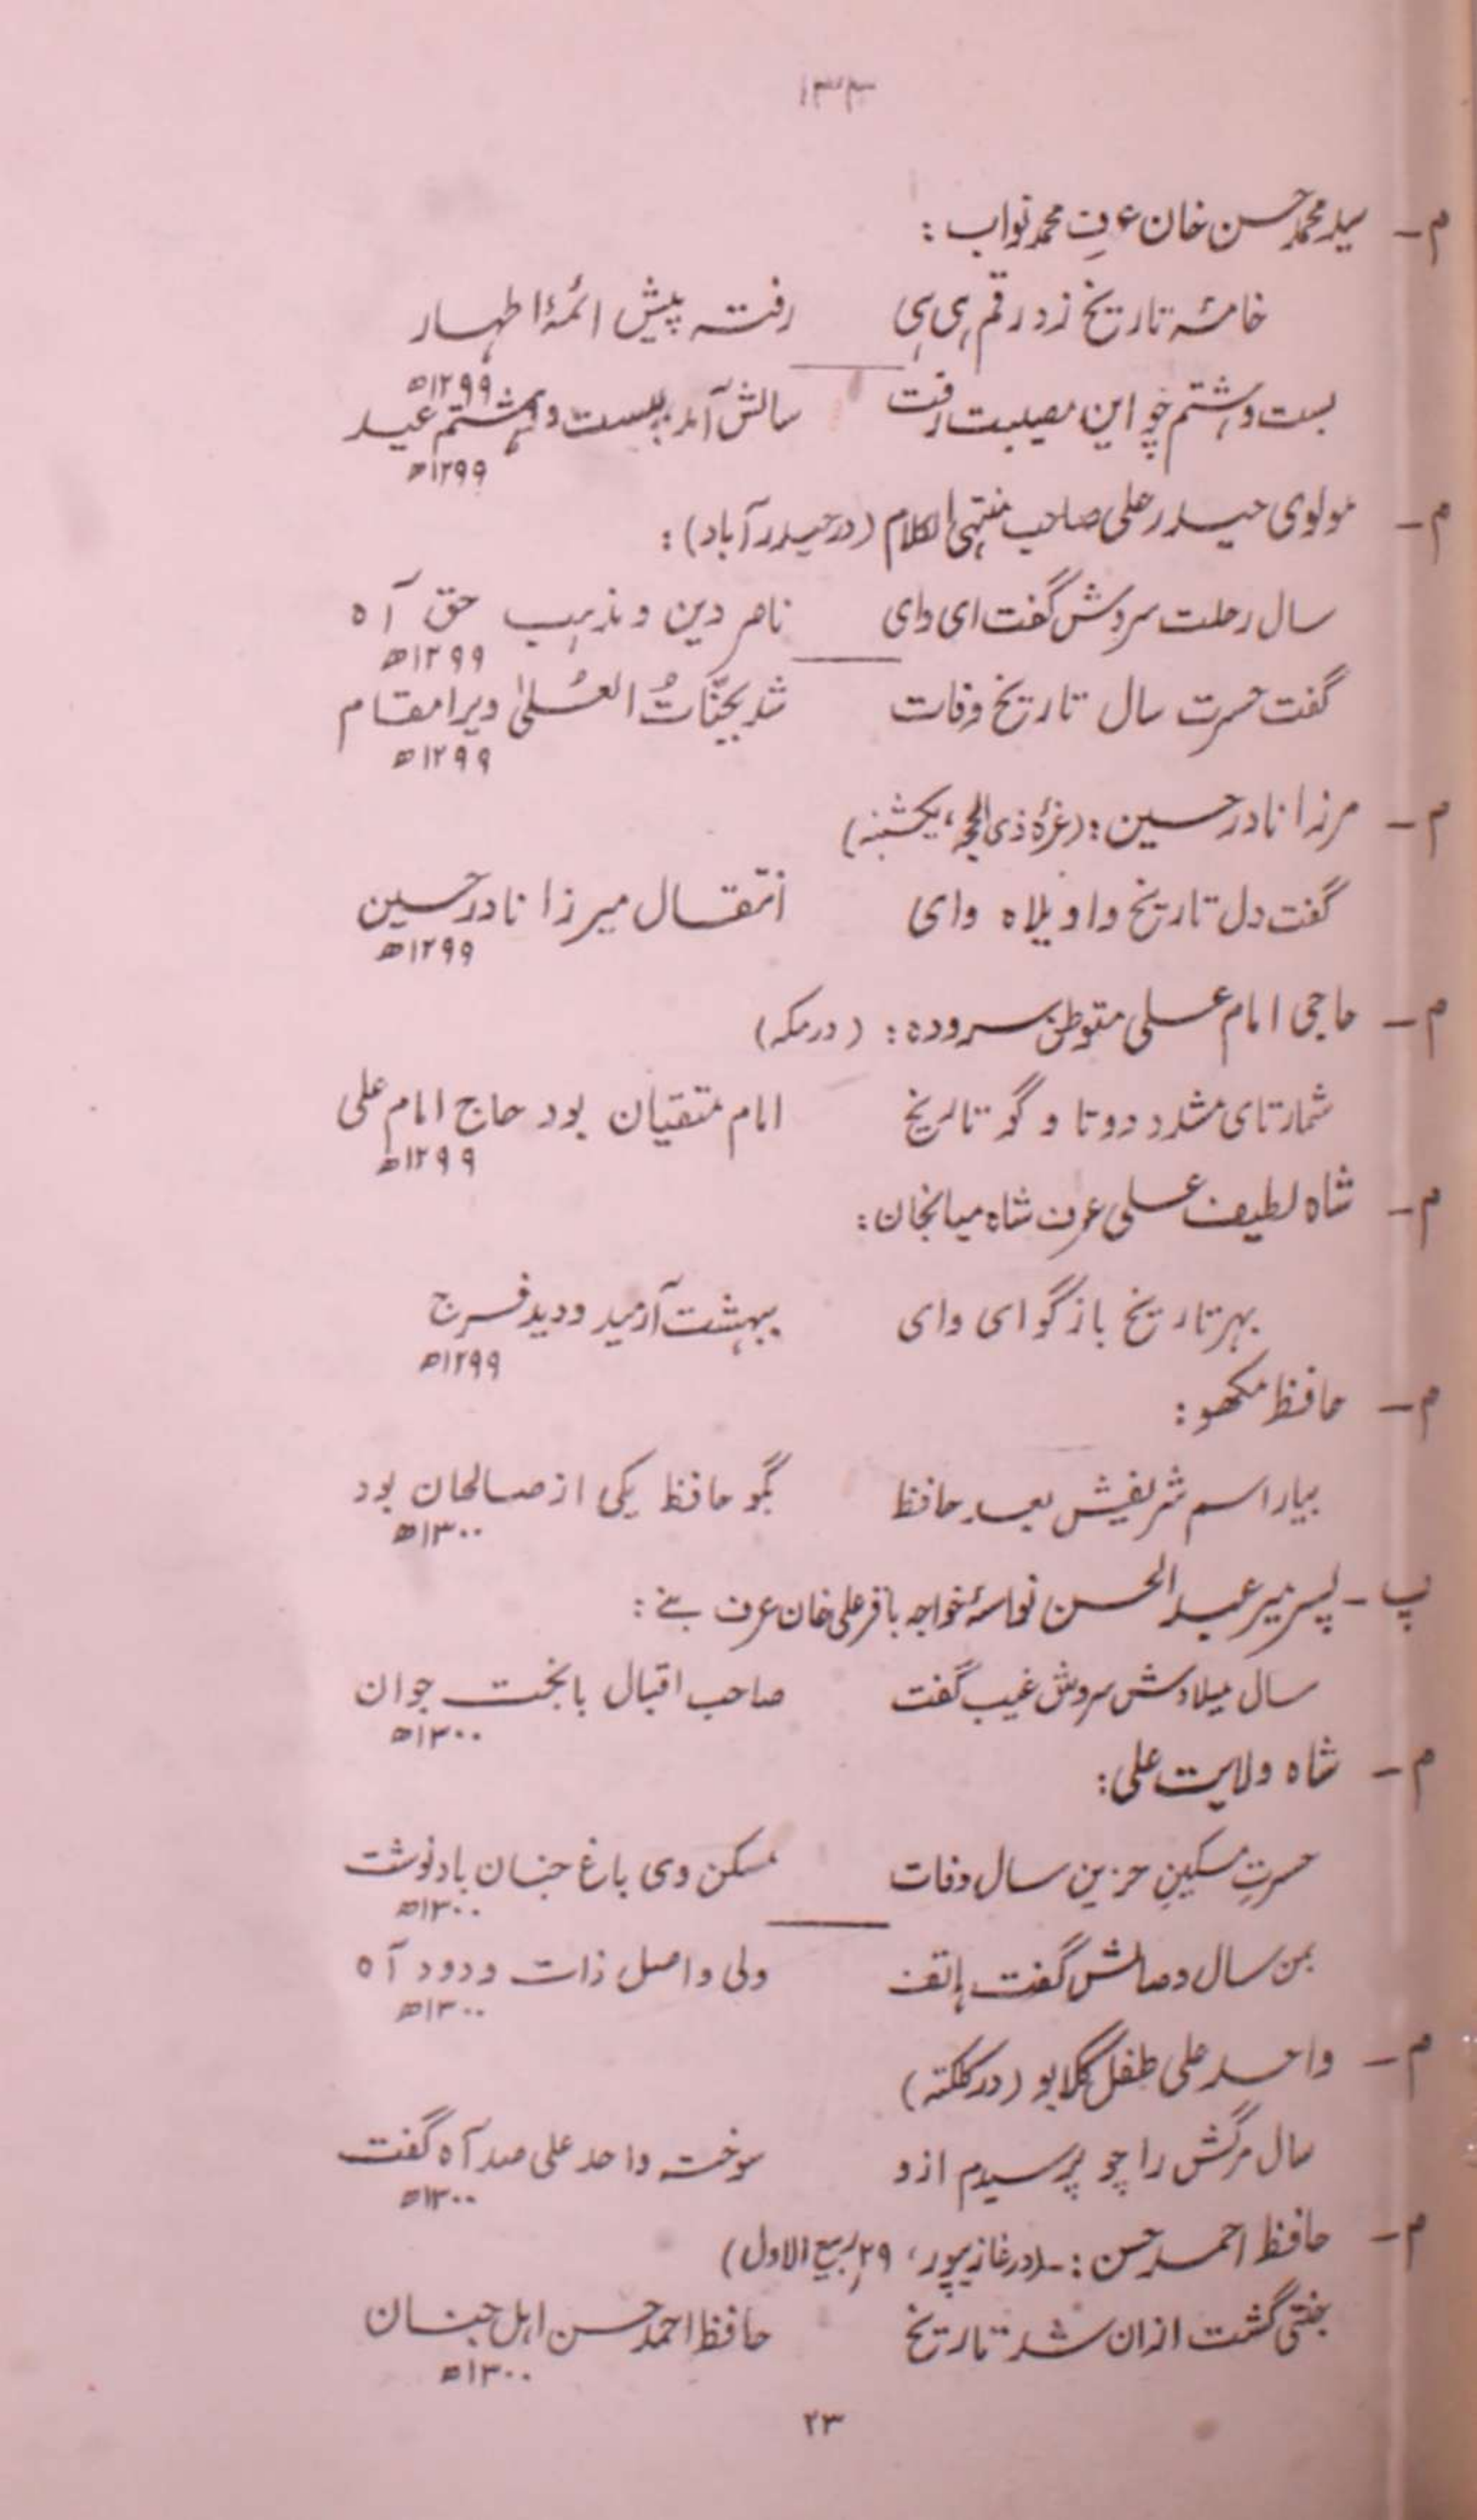 ۱۳۳
م۔ سید محمد حسن خان عرف محمد نواب :
خامۂ تاریخ زد رقم ہی ہی رفتہ پیش ائمۂ اطہار
۱۲۹۹ھ
بست و ہشتم چو این مصیبت رفت سالش آمد بیست و ہشتم عید
۱۲۹۹ھ
م۔ مولوی حیدر علی صاحب منتہی الکلام (در حیدرآباد) :
سال رحلت سروش گفت ای وای ناصر دین و مذہب حق آہ
۱۲۹۹ھ
گفت حسرت سال تاریخ وفات شد بجنّاتُ العُلیٰ ویرا مقام
۱۲۹۹ھ
م۔ مرزا نادر حسین : (غرۂ ذی الحجہ، یکشنبہ)
گفت دل تاریخ واویلاہ وای انتقال میرزا نادر حسین
۱۲۹۹ھ
م۔ حاجی امام علی متوطن سرودہ : (در مکہ)
شمار تای مشدد دوتا و گو تاریخ امام متقیان بود حاج امام علی
۱۲۹۹ھ
م۔ شاہ لطیف علی عرف شاہ میانجان :
بہر تاریخ باز گو ای وای ببہشت آرمید و دید فرج
۱۲۹۹ھ
م۔ حافظ مکھو :
بیار اسم شریفش بعد حافظ بگو حافظ یکی از صالحان بود
۱۳۰۰ھ
پ۔ پسر میر عبد الحسن نواسۂ خواجہ باقر علی خان عرف بنے :
سال میلادش سروش غیب گفت صاحب اقبال با بخت جوان
۱۳۰۰ھ
م۔ شاہ ولایت علی :
حسرتِ مسکینِ حزین سال وفات مسکن وی باغ جنان باد نوشت
۱۳۰۰ھ
بمن سال وصالش گفت ہاتف ولی واصل ذات ودود آہ
۱۳۰۰ھ
م۔ واحد علی طفل گلابو (در کلکتہ)
سال مرگش را چو پرسیدم ازو سوخت واحد علی صد آہ گفت
۱۳۰۰ھ
م۔ حافظ احمد حسن :۔ (در غازیپور، ۲۹ ربیع الاول)
جنتی گشت ازان شد تاریخ حافظ احمد حسن اہل جنان
۱۳۰۰ھ
۲۳